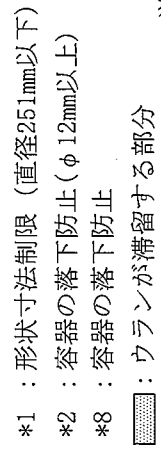 *1 :形状寸法制限 (直径251mm以下)
*2 :容器の落下防止(φ12mm以上)
*8 :容器の落下防止
:ウランが滞留する部分